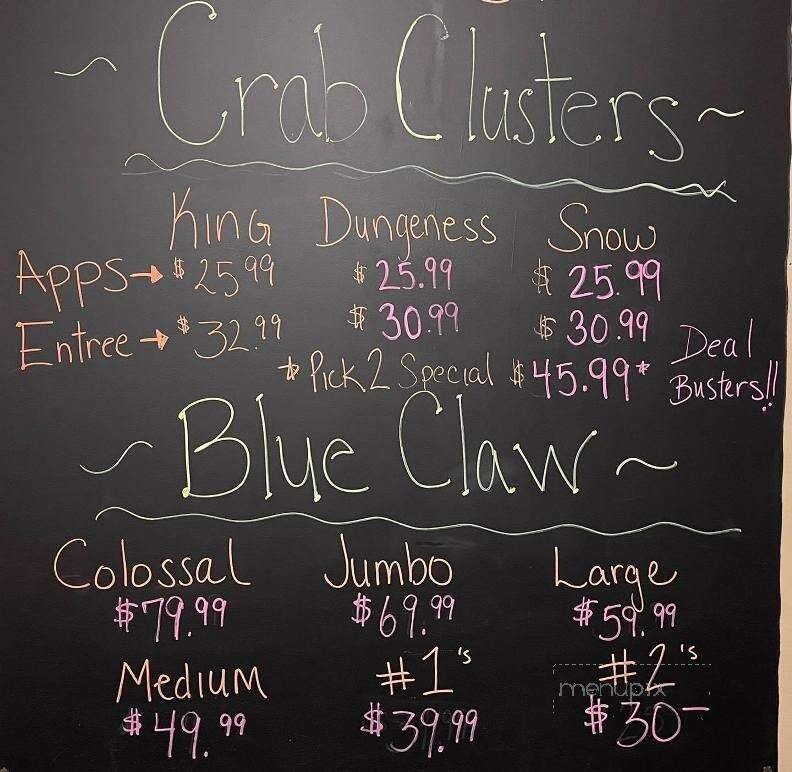 ~ Crab Clusters ~
King Dungeness Snow
Apps→ $25.99 $25.99 $25.99
Entree → $32.99 $30.99 $30.99
*Pick 2 Special $45.99* Deal Busters!!
~ Blue Claw ~
Colossal Jumbo Large
$79.99 $69.99 $59.99
Medium #1's #2's
menupix
$49.99 $39.99 $30-